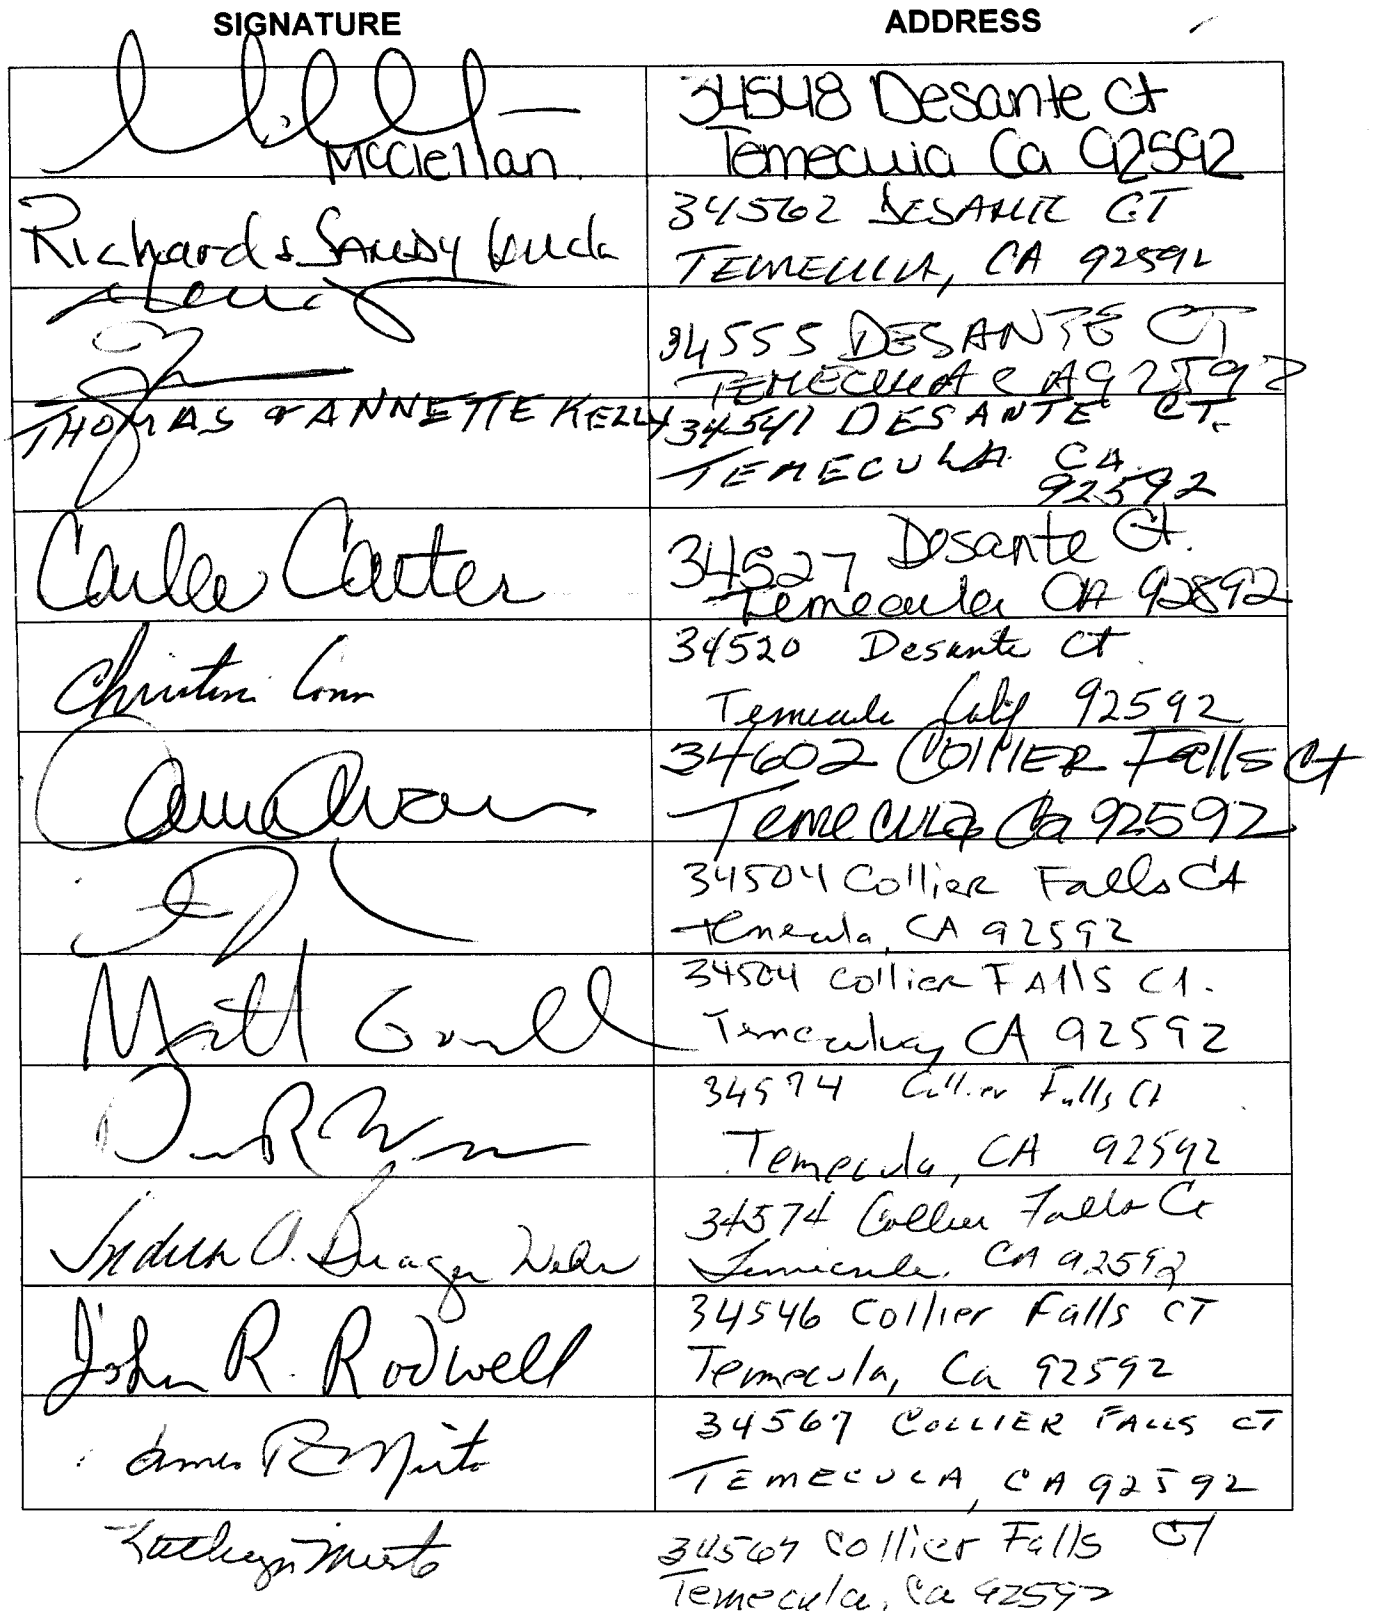 SIGNATURE ADDRESS
McClellan
34548 Desante Ct
Temecula Ca 92592
Richard & SANDY
34562 DESANTE CT
TEMECULA, CA 92592
34555 DESANTE CT
TEMECULA CA 92592
THOMAS & ANNETTE KELLY
34541 DESANTE CT.
TEMECULA CA.
92592
Carlee Carter
34527 Desante Ct.
Temecula CA 92892
Christine Conn
34520 Desante Ct
Temecula Calif 92592
34602 COllIER Falls Ct
Temecula Ca 92592
34504 Collier Falls Ct
Temecula, CA 92592
Matt
34504 Collier FAllS Ct.
Temecula, CA 92592
34574 Collier Falls Ct
Temecula, CA 92592
34574 Collier Falls Ct
Temecula, CA 92592
John R. Rodwell
34546 Collier Falls CT
Temecula, Ca 92592
James R Mirto
34567 COLLIER FALLS CT
TEMECULA, CA 92592
Kathryn Mirto
34567 Collier Falls Ct
Temecula, Ca 92592